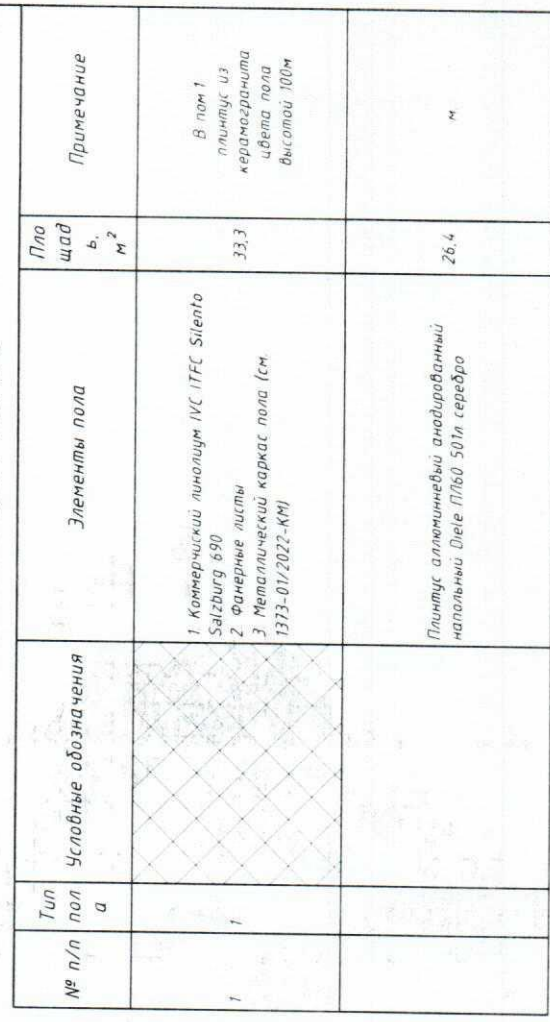 № п/п
Тип
пол
а
Условные обозначения
Элементы пола
Пло
щад
ь,
м²
Примечание
1
1
1. Коммерчиский линолиум IVC ITFC Silento
Salzburg 690
2 Фанерные листы
3 Металлический каркас пола (см.
1373-01/2022-КМ)
33,3
В пом 1
плинтус из
керамогранита
цвета пола
высотой 100м
Плинтус аллюминневый анодированный
напольный Diele ПЛ60 501л серебро
26,4
м